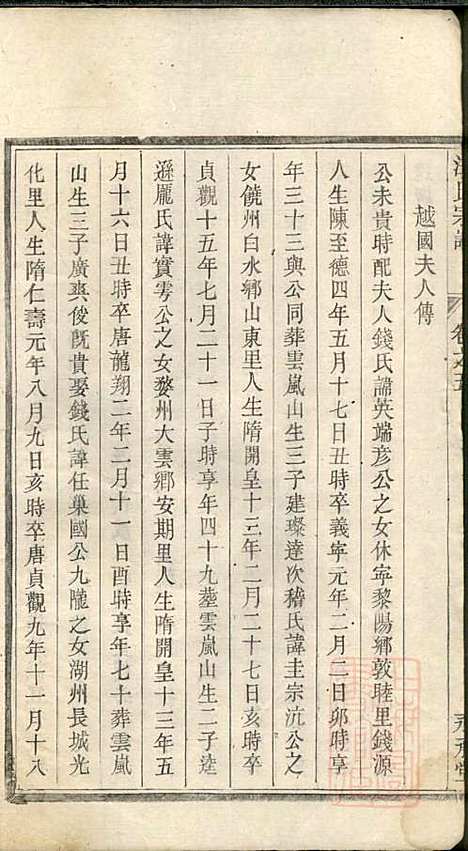 越國夫人傳
公未貴時配夫人錢氏諱英端彥公之女休寧黎陽鄉敦睦里錢源
人生陳至德四年五月十七日丑時卒義寧元年二月二日卯時享
年三十三與公同葬雲嵐山生三子建璨達次稽氏諱圭宗沆公之
女饒州白水鄉山東里人生隋開皇十三年二月二十七日亥時卒
貞觀十五年七月二十一日子時享年四十九塟雲嵐山生二子逵
遜龐氏諱實雱公之女婺州大雲鄉安期里人生隋開皇十三年五
月十六日丑時卒唐龍翔二年二月十一日酉時享年七十葬雲嵐
山生三子廣爽俊旣貴娶錢氏諱任巢國公九隴之女湖州長城光
化里人生隋仁壽元年八月九日亥時卒唐貞觀九年十一月十八
氏宗譜
卷之五